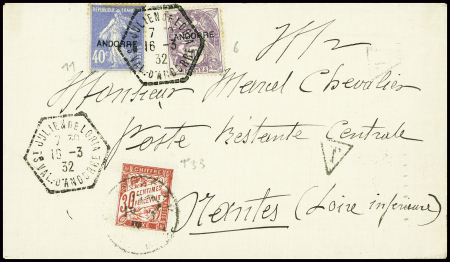 RÉPUBLIQUE FRANÇAISE
ANDORRE
40c
ANDORRE
ST JULIEN DE LORIA
7
16-3
32
VALS D'ANDORRE
6
11
Monsieur Marcel Chevalier
Poste Restante Centrale
ST JULIEN DE LORIA
7 30
16-3
32
VALS D'ANDORRE
T
T33
CHIFFRE
30
CENTIMES
À PERCEVOIR
Nantes (Loire inférieure)